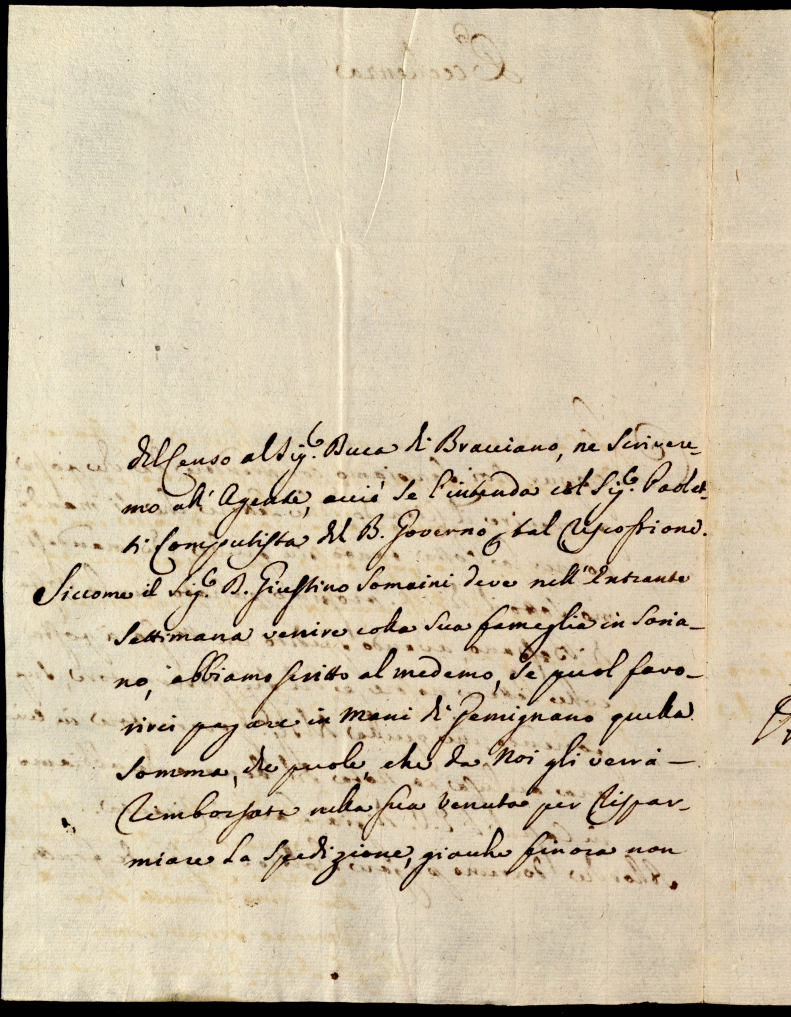 del Censo al Sig.e Duca di Bracciano, ne scrivere-
mo all' Agente, acciò se l'intenda col Sig.e Paolet-
ti Computista del B. Governo p tal riscossione.
Siccome il Sig.e D. Giustino Somaini deve nell' Entrante
settimana venire colla sua fameglia in Soria-
no, abbiamo scritto al medemo, se puol favo-
rirci pagare in mani di Gemignano quella
somma, che puole, che da Noi gli verrà
rimborsata nella sua venuta per rispar-
miare la spedizione, giacche finora non